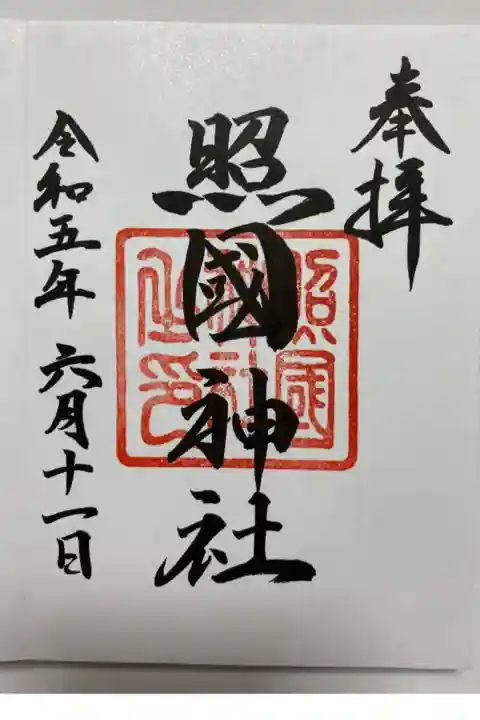 奉拝
照國神社
令和五年六月十一日
照國
神社
之印